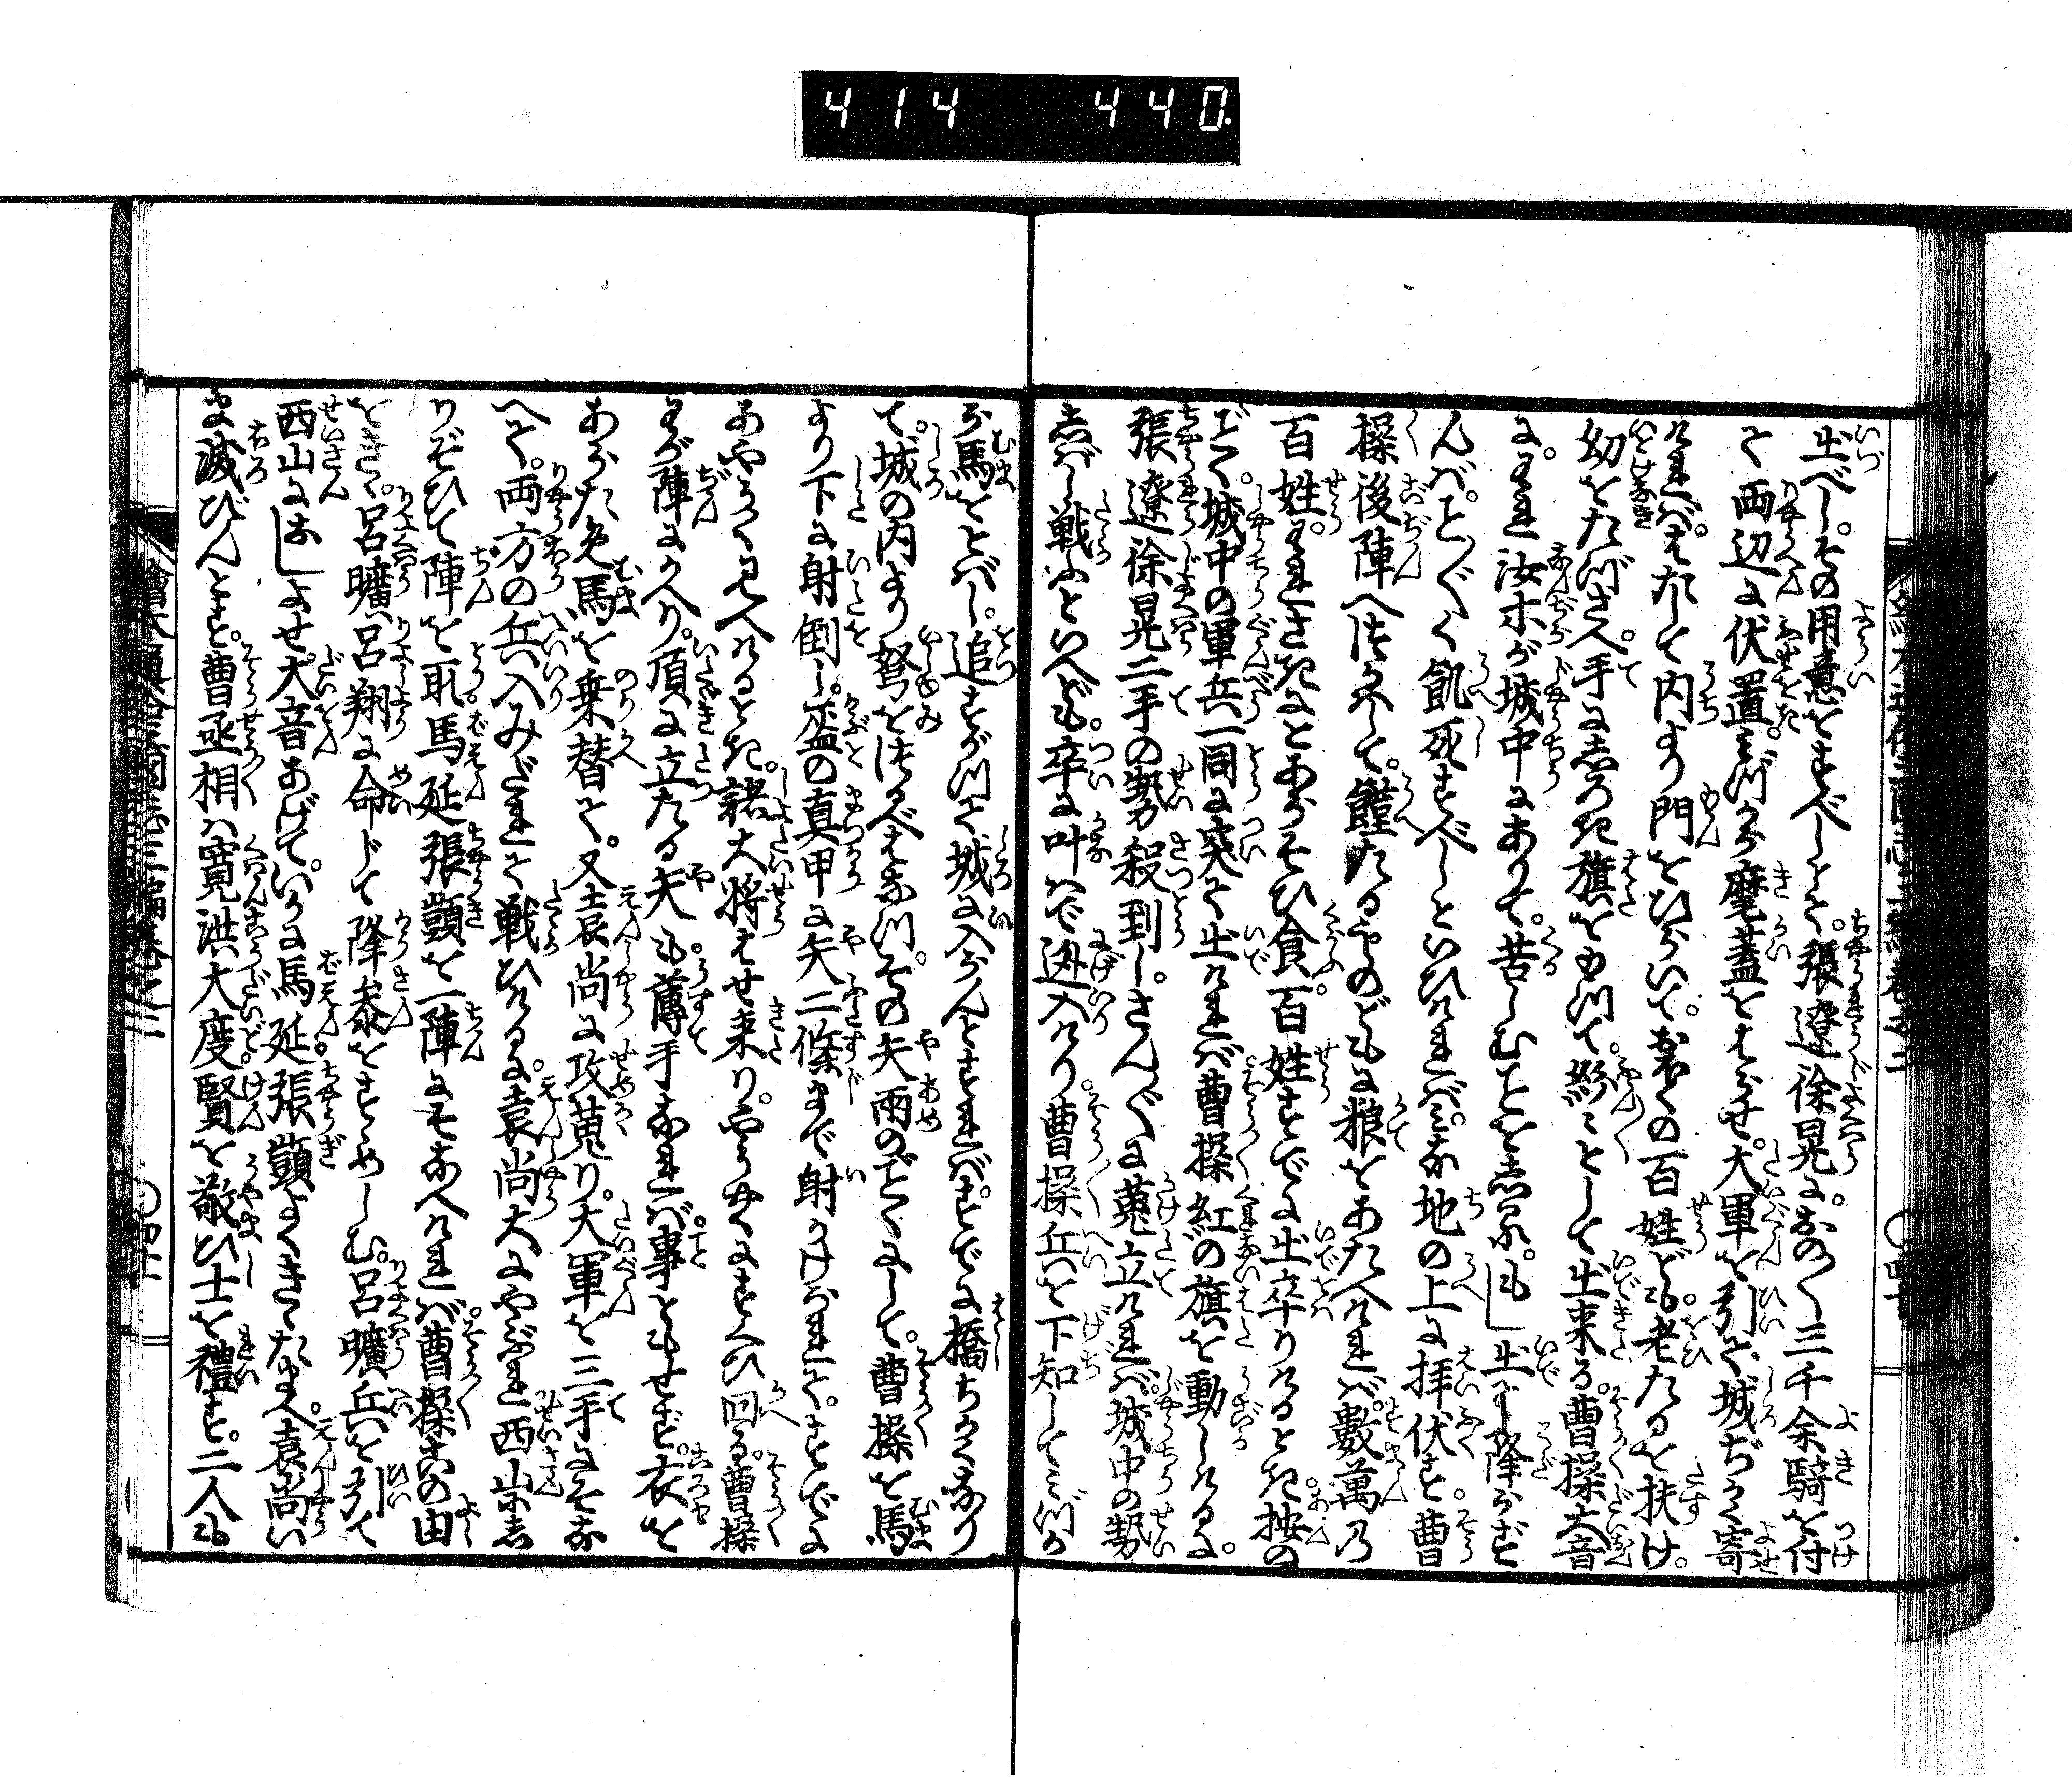 414 440
出べし。その用意をすべしとて。張遼徐晃に。おの〱三千余騎を付
て両辺に伏置。みづから麾蓋をはらせ。大軍を引て城ぢかく寄
ければ。はたして内より門をひらいて。おほくの百姓ども。老たるを扶け。
幼をたづさへ。手にしろき旗をもつて。紛〻として出来る。曹操大音
に。われ汝ホが城中にありて。苦しむことをしる。もし出て降らず
んば。こと〲く飢死すべしといひければ。みな地の上に拝伏す。曹
操後陣へつかはして。饐たるものどもに粮をあたへければ。數萬の
百姓。われさきにとあらそひ食。百姓すでに出卒りけるとき。按の
ごとく。城中の軍兵一同に突て出ければ曹操紅の旗を動しけるに。
張遼徐晃二手の勢殺到し。さん〲に蒐立ければ。城中の勢
しばし戦ふといへども。卒に叶はで迯入けり。曹操兵を下知してみづか
ら馬をとばし。追すがつて城に入らんとすれば。すでに橋ちかくなり
て。城の内より弩をつるべはなつ。その矢雨のごとくにして。曹操を馬
より下に射倒し。盔の真甲に矢二條まで射つけられて。すでに
あやうく見へけるとき。諸大将はせ来り。やう〱にすくひ回る。曹操
わが陣にかへり。頂に立たる矢も。薄手なれば事ともせず。衣を
あらため馬を乗替て。又袁尚に攻蒐り。大軍を三手にそな
へて。両方の兵入みだれて戦ひける。袁尚大にやぶれ西山にし
りぞひて陣を取。馬延張顗を一陣にそなへければ。曹操この由
をきゝ。呂曠呂翔に命じて降参をすゝめしむ。呂曠兵を引て
西山におしよせ。大音あげて。いかに馬延。張顗よくきゝたまへ。袁尚い
ま滅びんとす。曹丞相は寛洪大度。賢を敬ひ士を禮す。二人も
繪本通俗三國志三編巻之三
○四十